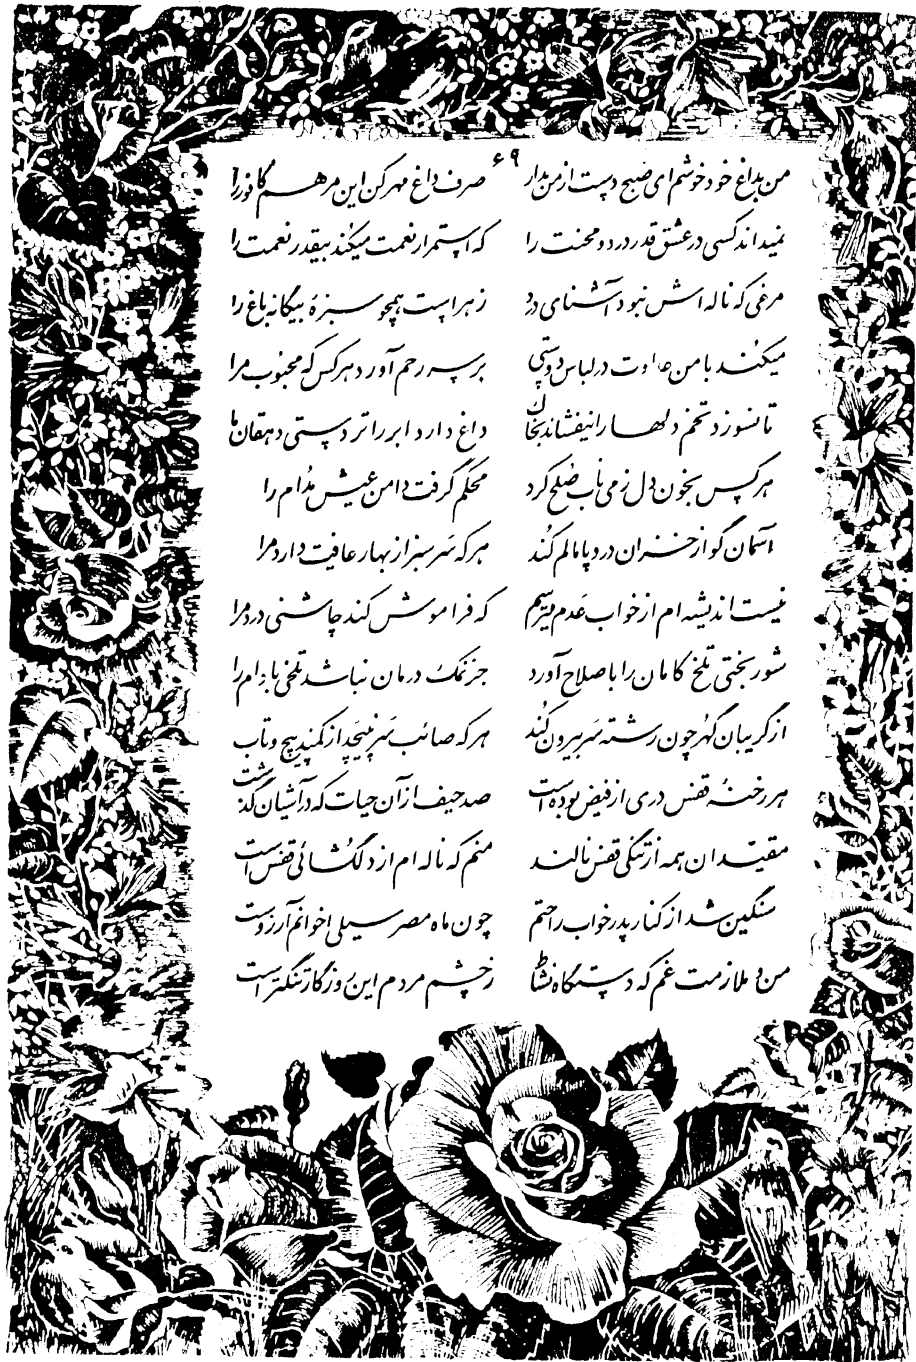 ۶۹
من بداغ خود خوشم ای صبح دست از من بدار صرف داغ مهر کن این مرهم کافور را
نمیداند کسی در عشق قدر درد و محنت را که استمرار نعمت میکند بیقدر نعمت را
مرغی که ناله اش نبود آشنای درد زهر است همچو سبزهٔ بیگانه باغ را
میکند با من عداوت در لباس دوستی بر سر رحم آورد هر کس که محبوب مرا
تا نسوزد تخم دلها را نیفشاند بخاک داغ دارد ابر را تردستی دهقان ما
هر کس بخون دل ز می ناب صلح کرد محکم گرفت دامن عیش مدام را
آسمان گو از خزان درد پامالم کند هر که سرسبز از بهار عافیت دارد مرا
نیست اندیشه ام از خواب عدم میترسم که فراموش کند چاشنی درد مرا
شور بختی تلخ کامان را باصلاح آورد جز نمک درمان نباشد تلخی بادام را
از گریبان گهر چون رشته سر بیرون کند هر که صائب سر نپیچد از کمند پیچ و تاب
هر رخنهٔ قفس دری از فیض بوده است صد حیف از آن حیات که در آشیان گذشت
مقیدان همه از تنگی قفس نالند منم که ناله ام از دلگشائی قفس است
سنگین شد از کنار پدر خواب راحتم چون ماه مصر سیلی اخوانم آرزوست
من و ملازمت غم که دستگاه نشاط ز چشم مردم این روزگار تنگتر است